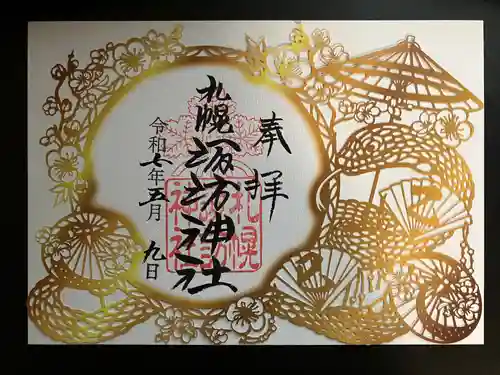 奉拝
札幌諏訪神社
令和七年五月九日
札幌
神社